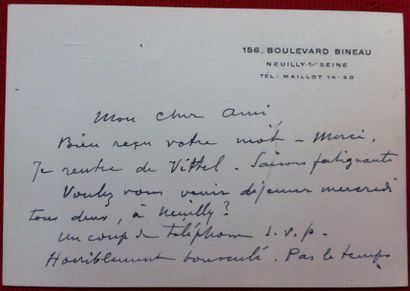 156, BOULEVARD BINEAU
NEUILLY S/ SEINE
TÉL: MAILLOT 14-50
Mon cher ami,
Bien reçu votre mot - Merci.
Je rentre de Vittel. Saison fatiguante
Voulez vous venir déjeuner mercredi
tous deux, à Neuilly?
Un coup de téléphone s.v.p.
Horriblement bousculé. Pas le temps